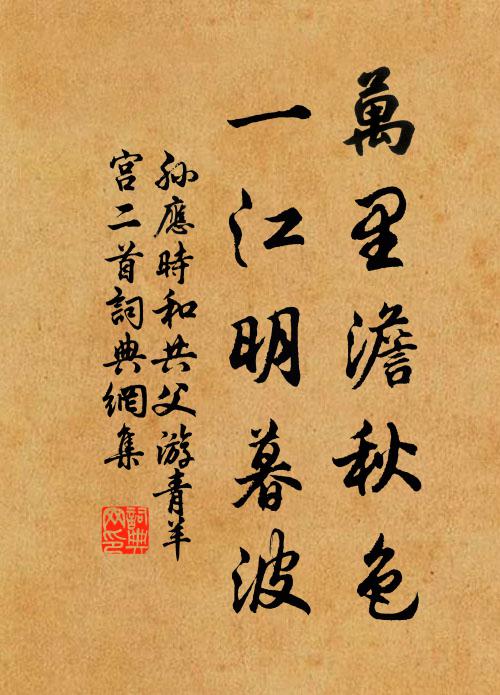 萬里澹秋色
一江明暮波
孙應時和共父游青羊
宮二首詞典網集
詞典
网印